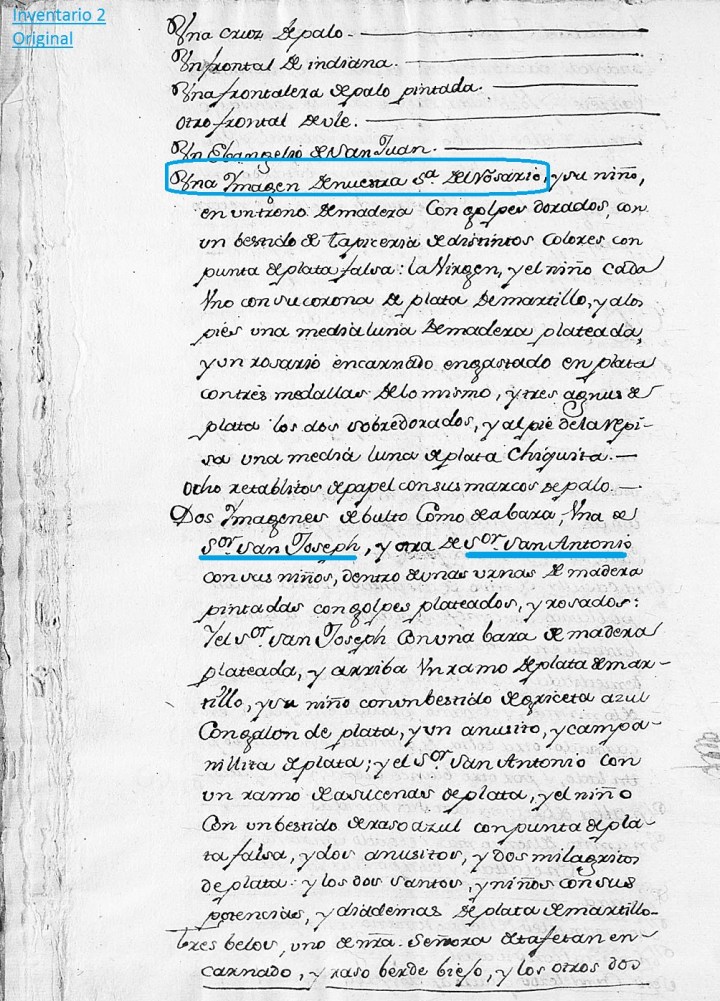 Inventario 2
Original
Una cruz de palo.
Un frontal de indiana.
Una frontalera de palo pintada.
otro frontal de ule.
Un Ebangelio de San Juan.
Una Ymagen de nuestra Sa. del Rosario, y su niño,
en un trono de madera con golpes dorados, con
un bestido de tapiceria de distintos colores con
punta de plata falsa: la Virgen, y el niño cada
Uno con su corona de plata de martillo, y a los
pies una media luna de madera plateada,
y un rosario encarnado engastado en plata
con tres medallas de lo mismo, y tres agnus de
plata los dos sobredorados, y al pie de la repi-
sa una media luna de plata chiquita.
Ocho retablitos de papel con sus marcos de palo.
Dos Ymagenes de bulto como de a bara, Una de
Sor. San Joseph, y otra de Sor. San Antonio
con sus niños, dentro de unas urnas de madera
pintadas con golpes plateados, y rosados:
Y el Sor. San Joseph con una bara de madera
plateada, y arriba Un ramo de plata de mar-
tillo, y su niño con un bestido de griceta azul
Con galon de plata, y un anusito, y campa-
nillita de plata; y el Sor. San Antonio con
un ramo de asucenas de plata, y el niño
Con un bestido de raso azul con punta de pla-
ta falsa, y dos anusitos, y dos milagritos
de plata: y los dos Santos, y niños con sus
potencias, y diademas de plata de martillo.
tres belos, uno de nra. Señora de tafetan en-
carnado, y raso berde biejo, y los otros dos